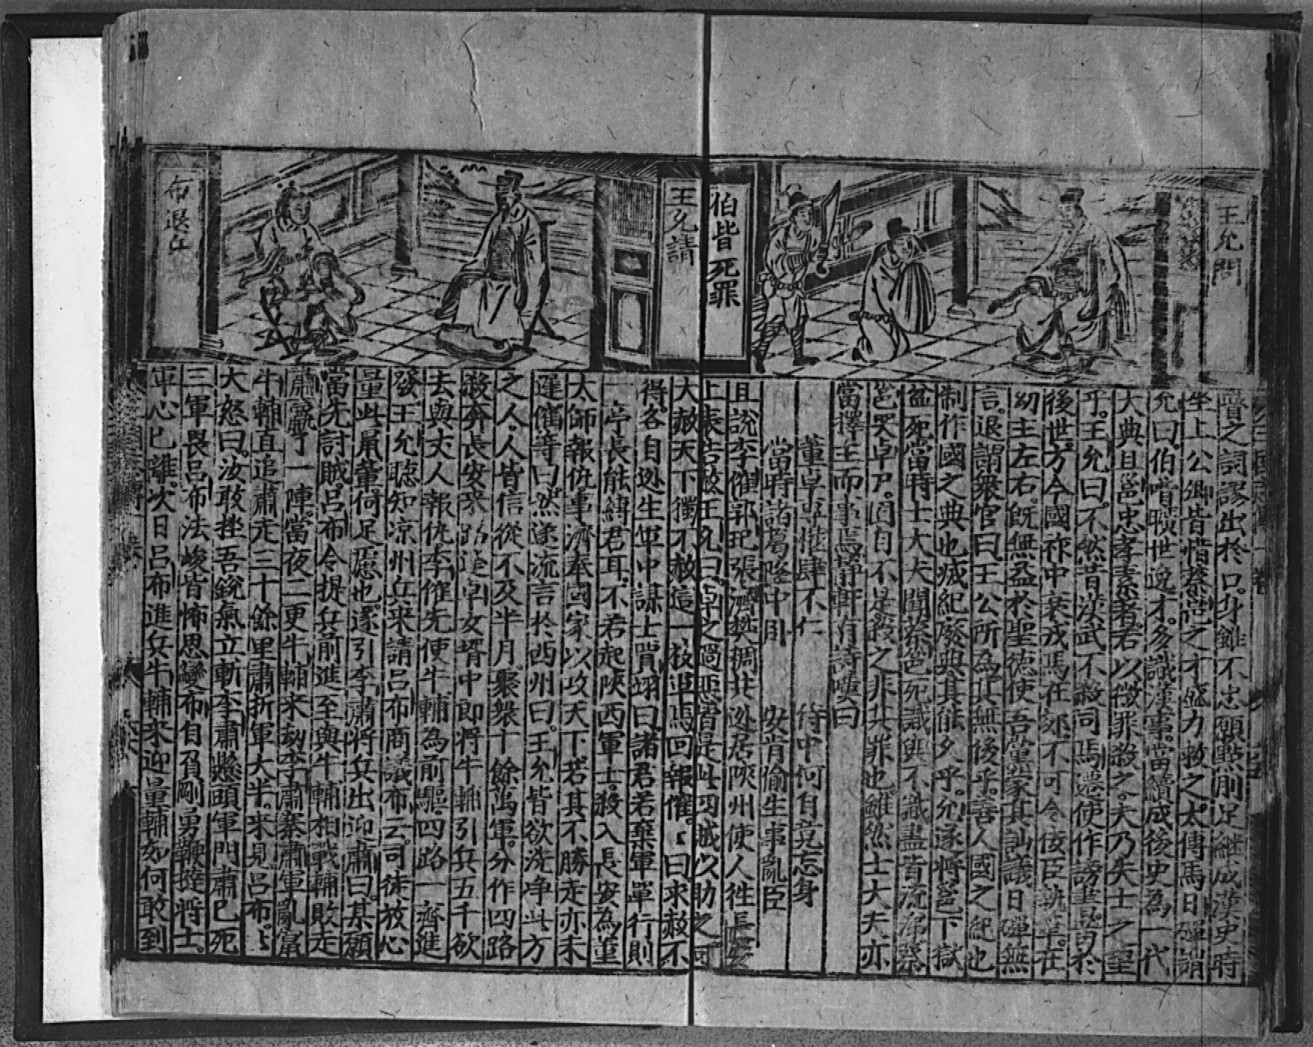 王允問
伯喈死罪
瞽之詞謬出於口身雖不忠願黥刖足継成漢史時
坐上公卿皆惜蔡邕之才盛力救之太傅馬日磾謂
允曰伯喈曠世逸才多識漢事當續成後史為一代
大典且邕忠孝素著若以微罪殺之大乃失士之望
乎王允曰不然昔漢武不殺司馬遷使作謗書留於
後世方今國祚中衰戎馬在郊不可令佞臣執筆在
幼主左右既無益於聖德使吾黨蒙其訕議日磾無
言退謂衆官曰王公所為其無後乎善人國之紀也
制作國之典也㓕紀廢典其能久乎允遂將邕下獄
縊死當時士大夫聞蔡邕死識與不識盡皆流涕蔡
邕哭卓尸固自不是殺之非其罪也雖然士大夫亦
當擇主而事焉靜軒有詩嘆曰
董卓專權肆不仁 侍中何自竟忘身
當時諸葛隆中卧 安肯偷生事亂臣
且說李傕郭汜張濟樊稠共逃居陝州使人徃長安
上表告赦王允曰卓之禍惡者是此四賊以助之可
王允請
布退江
大赦天下獨不赦這一枝軍馬回報傕傕曰求赦不
得各自逃生軍中謀士賈翊曰諸君若棄軍單行則
一亭長能縛君耳不若起陝西軍士殺入長安為董
太師報仇事濟奉國家以攻天下若其不勝走亦未
遲傕等曰然遂流言於西州曰王允皆欲洗净此方
之人人皆信從不及半月聚衆十餘萬軍分作四路
殺奔長安來路逢卓女壻中郎將牛輔引兵五千欲
去與丈人報仇李傕先使牛輔為前驅四路一齊進
發王允聴知凉州兵來請呂布商議布云司徒放心
量此鼠輩何足慮也遂引李肅將兵出迎肅曰某願
當先討賊呂布令提兵前進至與牛輔相戰輔敗走
肅贏了一陣當夜二更牛輔來刼李肅寨肅軍亂竄
牛輔直追肅走三十餘里肅折軍大半來見呂布布
大怒曰汝敢挫吾銳氣立斬李肅懸頭軍門肅已死
三軍畏呂布法峻皆怖思變布自負剛勇鞭撻將士
軍心已離次日呂布進兵牛輔來迎量輔如何敢到